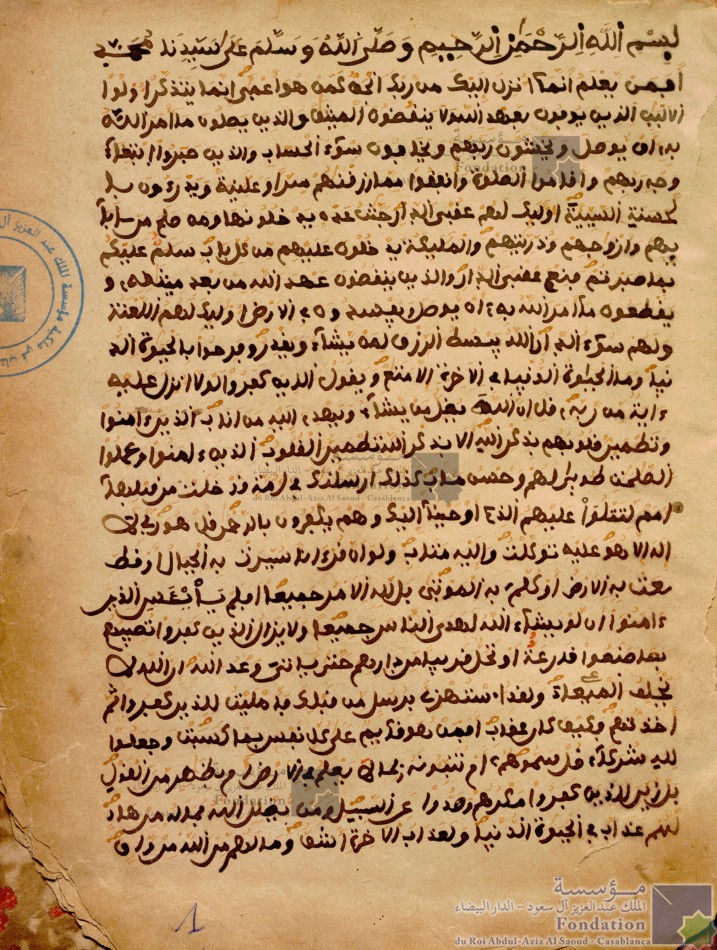 بسم الله الرحمن الرحيم وصلى الله وسلم على سيدنا محمد
افمن يعلم انما انزل اليك من ربك الحق كمن هو اعمى انما يتذكر اولوا
الالبب الذين يوفون بعهد الله ولا ينقضون الميثق والذين يصلون ما امر الله
به ان يوصل ويخشون ربهم ويخافون سوء الحساب والذين صبروا ابتغاء
وجه ربهم واقاموا الصلوة وانفقوا مما رزقنهم سرا وعلنية ويدرءون با
لحسنة السيئة اوليك لهم عقبى الدار جنت عدن يدخلونها ومن صلح من ءابا
يهم وازوجهم وذريتهم والمليكة يدخلون عليهم من كل باب سلم عليكم
بما صبرتم فنعم عقبى الدار والذين ينقضون عهد الله من بعد ميثقه و
يقطعون ما امر الله به ان يوصل ويفسدون في الارض اوليك لهم اللعنة
ولهم سوء الدار الله يبسط الرزق لمن يشاء ويقدر وفرحوا بالحيوة الد
نيا وما الحيوة الدنيا في الاخرة الا متع ويقول الذين كفروا لولا انزل عليه
ءاية من ربه قل ان الله يضل من يشاء ويهدي اليه من اناب الذين ءامنوا
وتطمين قلوبهم بذكر الله الا بذكر الله تطمين القلوب الذين ءامنوا وعملوا
الصلحت طوبى لهم وحسن ماب كذلك ارسلنك في امة قد خلت من قبلها
امم لتتلوا عليهم الذي اوحينا اليك وهم يكفرون بالرحمن قل هو ربي لا
اله الا هو عليه توكلت واليه متاب ولو ان قرءانا سيرت به الجبال او قط
عت به الارض او كلم به الموتى بل لله الامر جميعا افلم يايئس الذين
ءامنوا ان لو يشاء الله لهدى الناس جميعا ولا يزال الذين كفروا تصيبهم
بما صنعوا قارعة او تحل قريبا من دارهم حتى ياتي وعد الله ان الله لا
يخلف الميعاد ولقد استهزئ برسل من قبلك فامليت للذين كفروا ثم
اخذتهم فكيف كان عقاب افمن هو قايم على كل نفس بما كسبت وجعلوا
لله شركاء قل سموهم ام تنبئونه بما لا يعلم في الارض ام بظهر من القول
بل زين للذين كفروا مكرهم وصدوا عن السبيل ومن يضلل الله فما له من هاد
لهم عذاب في الحيوة الدنيا ولعذاب الاخرة اشق وما لهم من الله من واق
1
مؤسسة
الملك عبد العزيز آل سعود - الدار البيضاء
Fondation
du Roi Abdul-Aziz Al Saoud - Casablanca